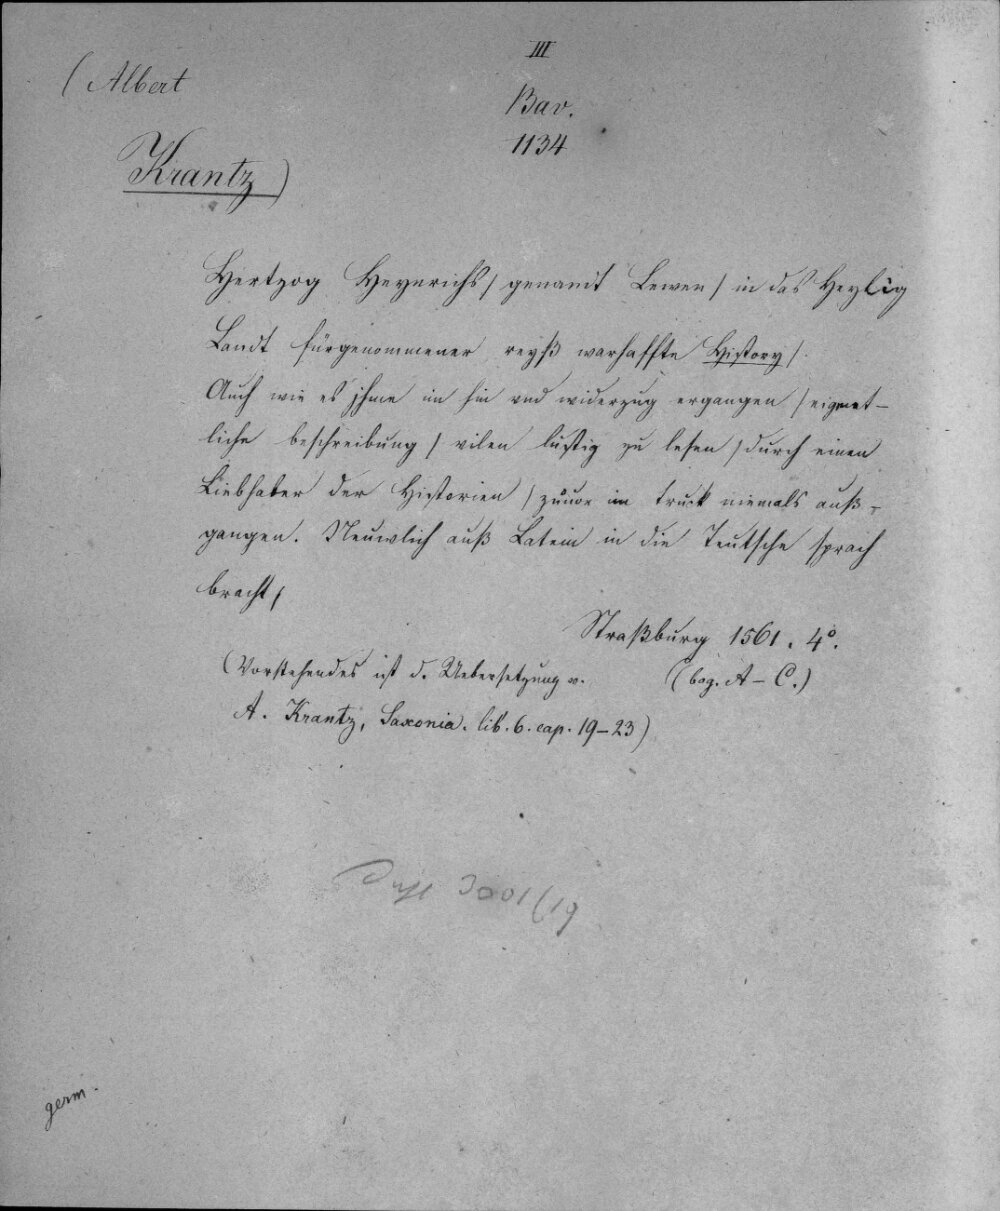 III
(Albert
Bav.
1134
Krantz)
Hertzog Heynrichs / genamt Lewen / in das Heylig
Landt fürgenommener reyß warhaffte History /
Auch wie es jhme im hin vnd widerzug ergangen / eigent-
liche beschreibung / vilen lustig zu lesen / durch einen
Liebhaber der Historien / zuuor im truck niemals auß-
gangen. Neuwlich auß Latein in die Teutsche sprach
bracht /
Straßburg 1561. 4º.
(Vorstehendes ist d. Uebersetzung v.
(bog. A – C.)
A. Krantz, Saxonia. lib. 6. cap. 19–23)
3001/19
germ.